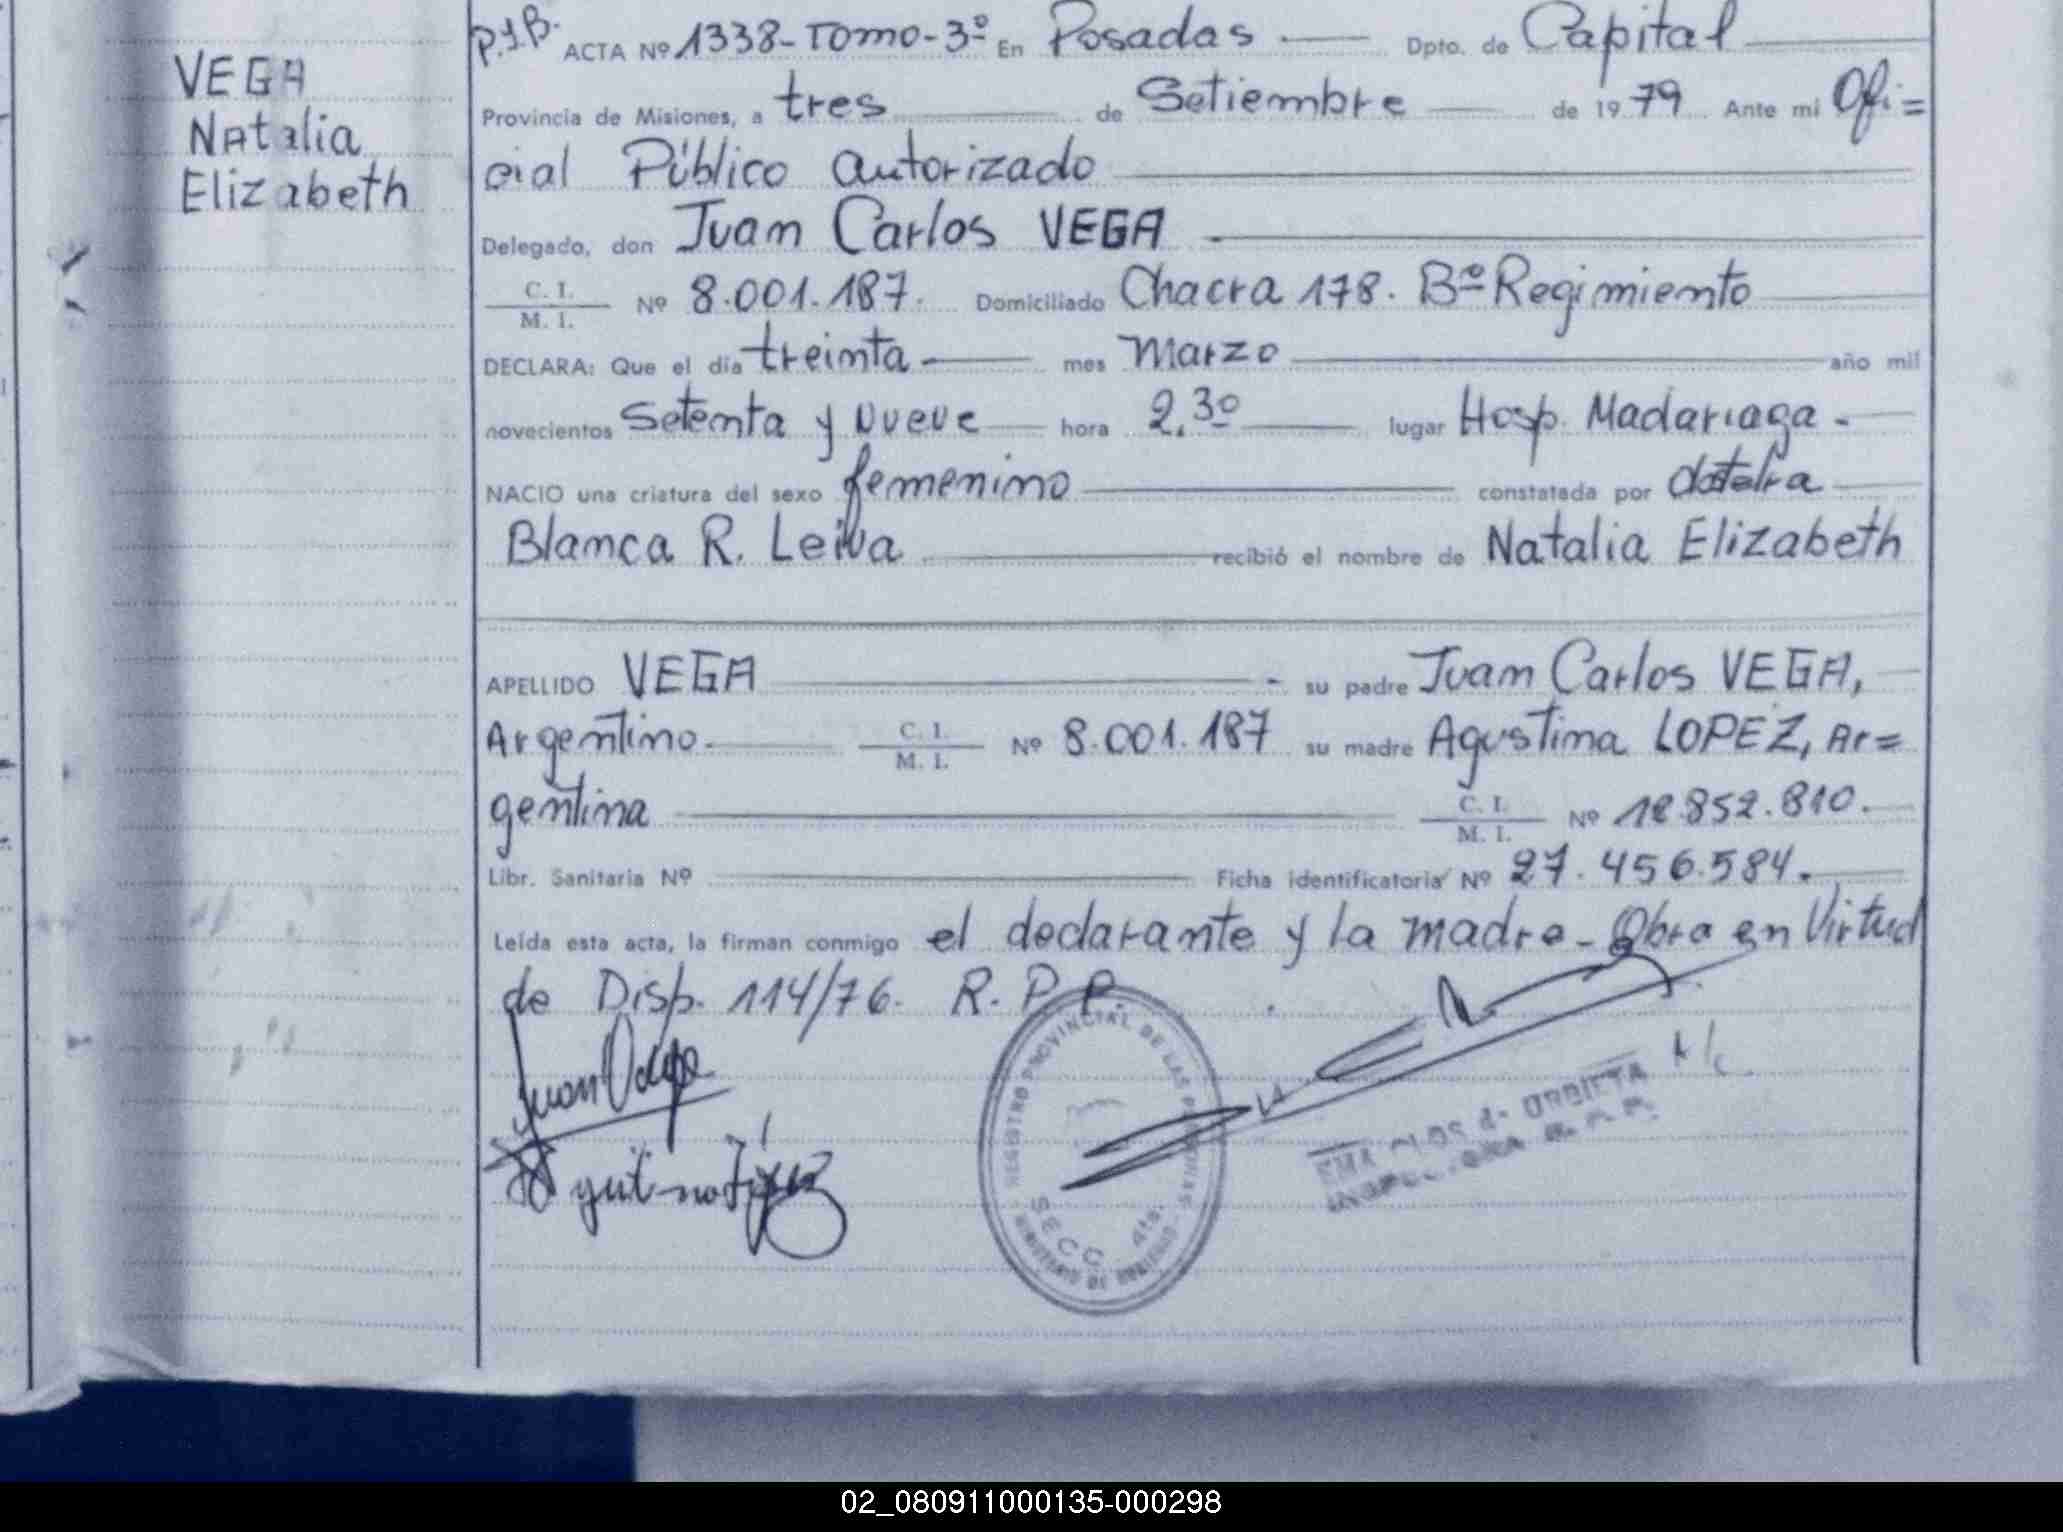 VEGA
Natalia
Elizabeth
P.I.B. ACTA Nº 1338-Tomo-3º En Posadas Dpto. de Capital
Provincia de Misiones, a tres de Setiembre de 1979 Ante mi Ofi=
cial Público autorizado
Delegado, don Juan Carlos VEGA
C. I. / M. I. Nº 8.001.187. Domiciliado Chacra 178. Bº Regimiento
DECLARA: Que el día treinta mes Marzo año mil
novecientos Setenta y nueve hora 2.30 lugar Hosp. Madariaga-
NACIO una criatura del sexo femenino constatada por
Blanca R. Leiva recibió el nombre de Natalia Elizabeth
APELLIDO VEGA su padre Juan Carlos VEGA,
Argentino C. I. / M. I. Nº 8.001.187 su madre Agustina LOPEZ, Ar=
gentina C. I. / M. I. Nº 12.852.810.
Libr. Sanitaria Nº Ficha identificatoria Nº 27.456.584.
Leída esta acta, la firman conmigo el declarante y la madre- Obra en Virtud
de Disp. 114/76. R.P.P.
Juan Vega
REGISTRO PROVINCIAL DE LAS PERSONAS
SECC. 4ta.
MINISTERIO DE GOBIERNO
URBIETA
02_080911000135-000298